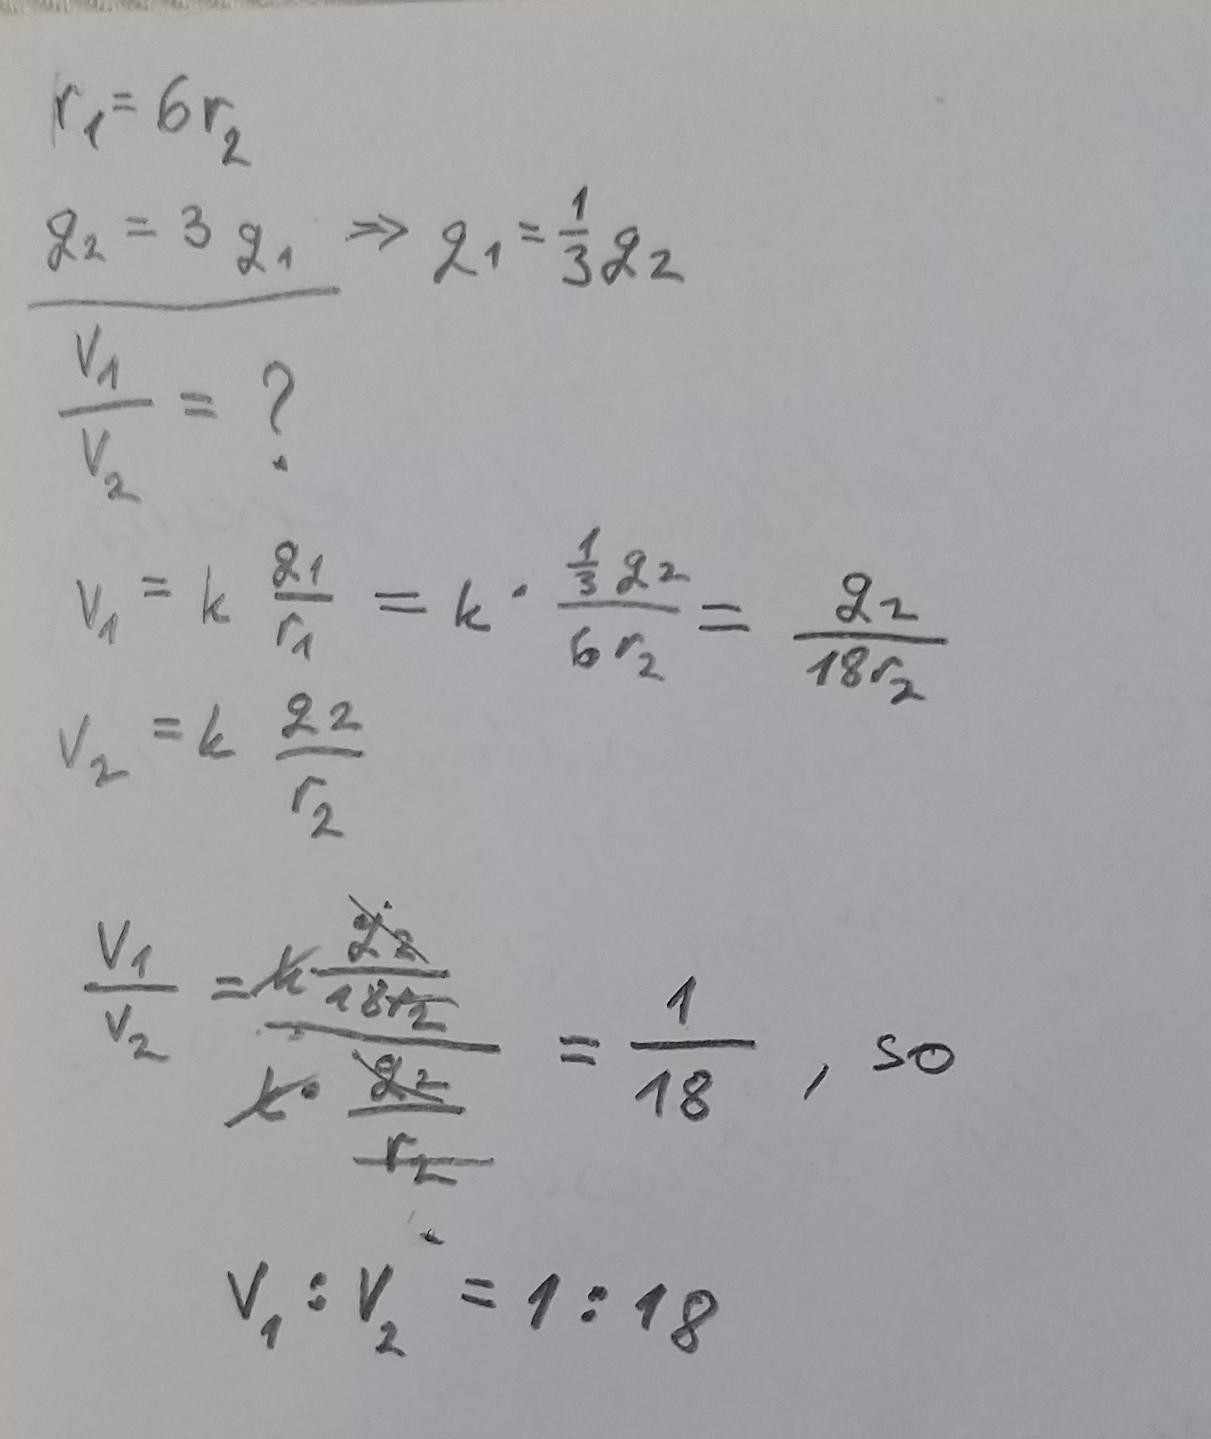 r₁ = 6r₂
q₂ = 3 q₁ ⇒ q₁ = 1/3 q₂
V₁/V₂ = ?
V₁ = k q₁/r₁ = k · (1/3 q₂)/(6 r₂) = q₂/(18r₂)
V₂ = k q₂/r₂
V₁/V₂ = (k · q₂/(18r₂))/(k · q₂/r₂) = 1/18 , so
V₁ : V₂ = 1 : 18